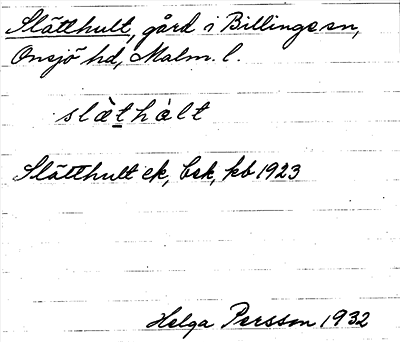 Slätthult, gård i Billinge sn,
Onsjö hd, Malm. l.
slèthàlt
Slätthult ek, bsk, kb 1923
Helga Persson 1932